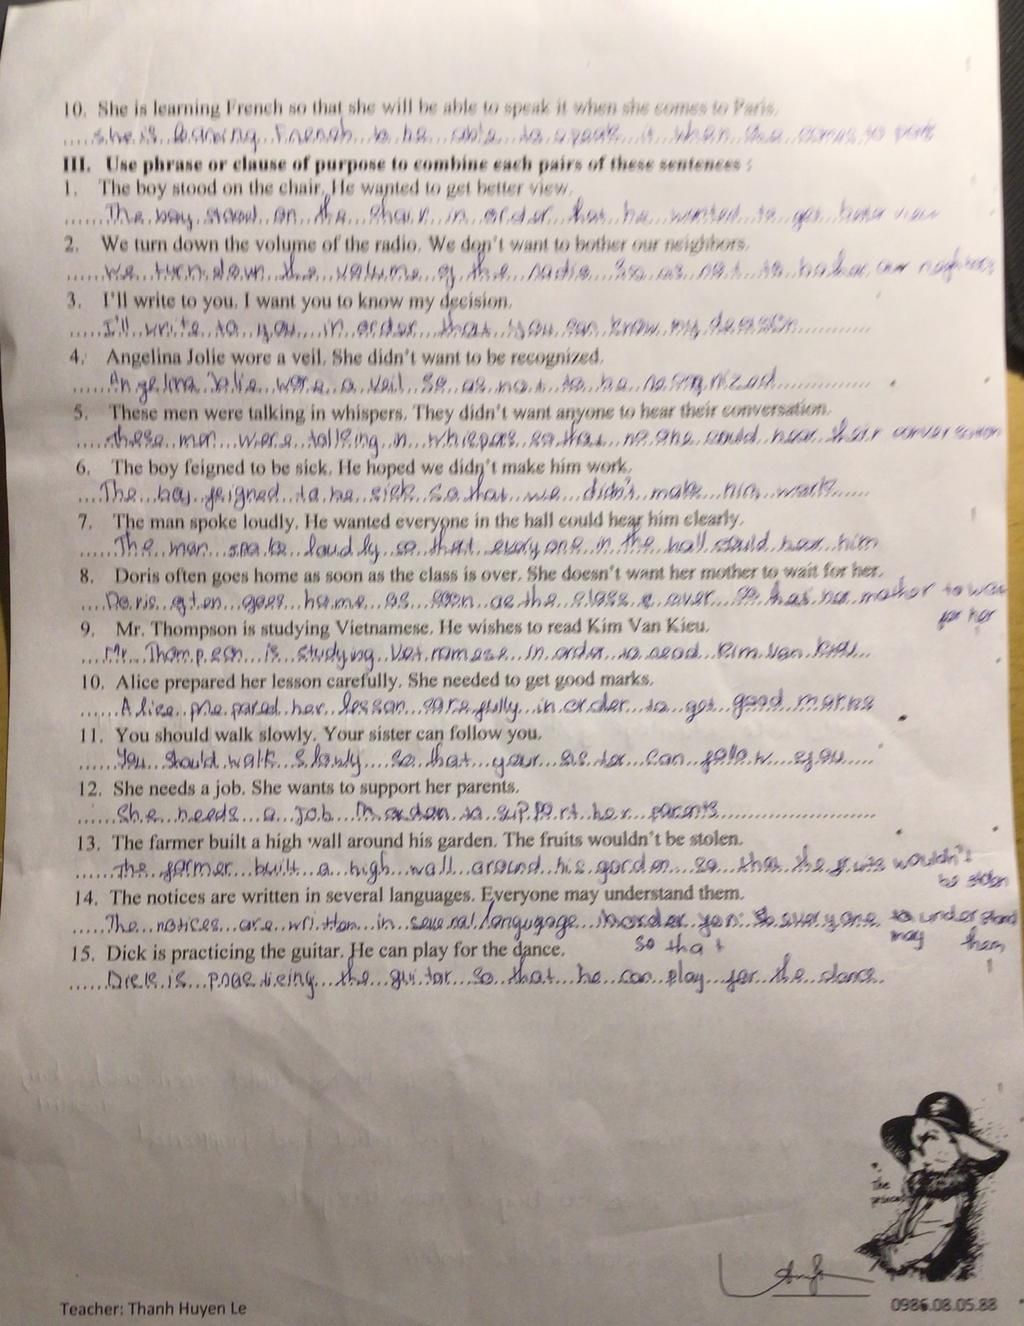 10. She is learning French so that she will be able to speak it when she comes to Paris.
She is learning French to be able to speak it when she comes to
III. Use phrase or clause of purpose to combine each pairs of these sentences :
1. The boy stood on the chair. He wanted to get better view.
The boy stood on the chair in order that he wanted to get better view
2. We turn down the volume of the radio. We don't want to bother our neighbors.
We turn down the volume of the radio so as not to bother our neighbors
3. I'll write to you. I want you to know my decision.
I'll write to you in order that you can know my
4. Angelina Jolie wore a veil. She didn't want to be recognized.
Angelina Jolie wore a veil so as not to be recognized
5. These men were talking in whispers. They didn't want anyone to hear their conversation.
these men were talking in whispers so that no one could hear their conversation
6. The boy feigned to be sick. He hoped we didn't make him work.
The boy feigned to be sick so that we didn't make him work
7. The man spoke loudly. He wanted everyone in the hall could hear him clearly.
The man spoke loudly so that everyone in the hall could hear him
8. Doris often goes home as soon as the class is over. She doesn't want her mother to wait for her.
Doris often goes home as soon as the class is over so that her mother to wait
for her
9. Mr. Thompson is studying Vietnamese. He wishes to read Kim Van Kieu.
Mr. Thompson is studying in order to read Kim Van Kieu
10. Alice prepared her lesson carefully. She needed to get good marks.
Alice prepared her lesson carefully in order to get good marks
11. You should walk slowly. Your sister can follow you.
You should walk slowly so that your sister can follow you
12. She needs a job. She wants to support her parents.
She needs a job in order to support her parents
13. The farmer built a high wall around his garden. The fruits wouldn't be stolen.
The farmer built a high wall around his garden so that the fruits wouldn't
be stolen
14. The notices are written in several languages. Everyone may understand them.
The notices are written in several inorder everyone to understand
so that may them
15. Dick is practicing the guitar. He can play for the dance.
Dick is practicing the guitar so that he can play for the dance
The
princess
Teacher: Thanh Huyen Le
0986.08.05.88